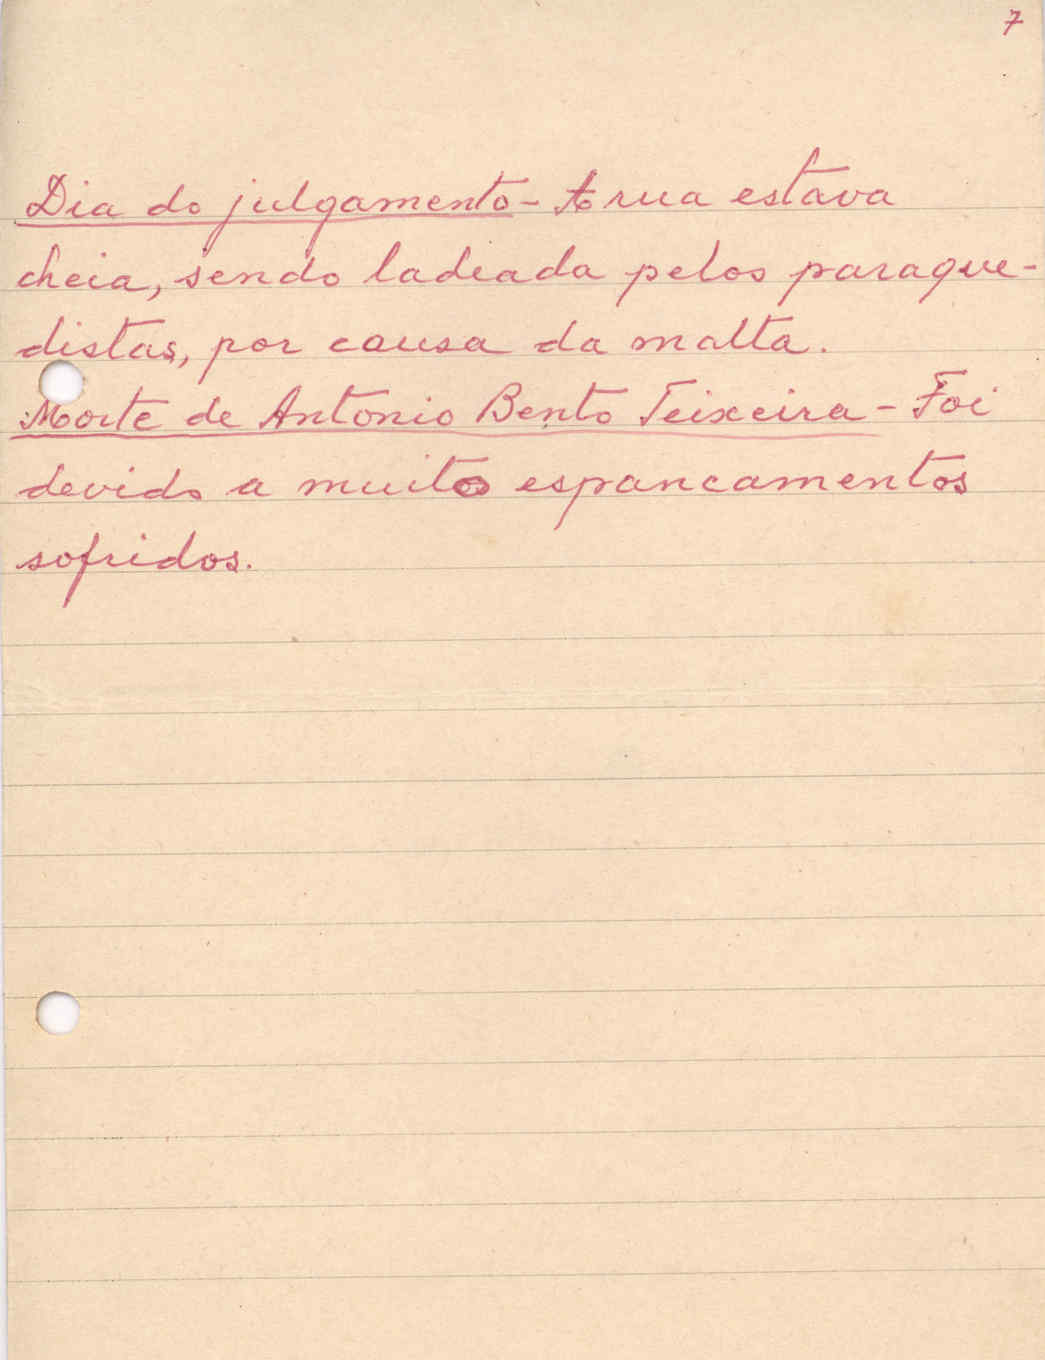 7
Dia do julgamento - A rua estava
cheia, sendo ladeada pelos paraque-
distas, por causa da malta.
Morte de Antonio Bento Teixeira - Foi
devido a muitos espancamentos
sofridos.